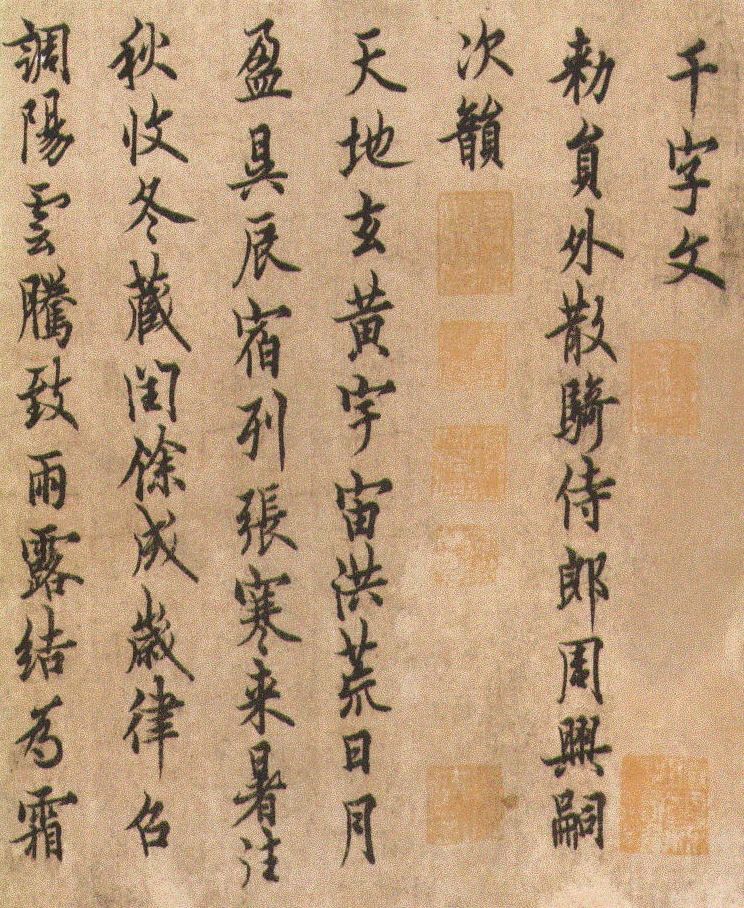 千字文
勅貟外散騎侍郎周興嗣
次韻
天地玄黄宇宙洪荒日月
盈昃辰宿列張寒来暑往
秋收冬藏閏餘成歲律召
調陽雲騰致雨露結為霜